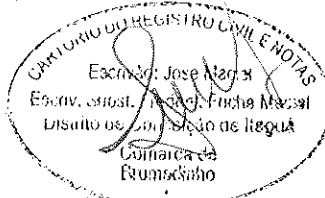 CARTÓRIO DO REGISTRO CIVIL E NOTAS
Escrivão: José Maciel
Escriv. Subst.
Maciel
Distrito de Conceição de Itaguá
Comarca de
Brumadinho